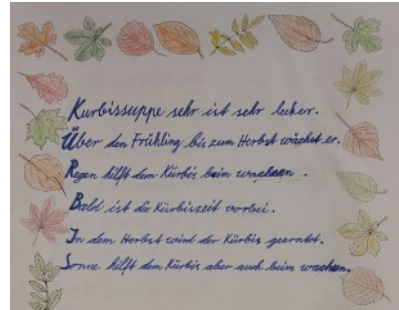 Kürbissuppe sehr ist sehr lecker.
Über den Frühling bis zum Herbst wächst er.
Regen hilft dem Kürbis beim wachsen.
Bald ist die Kürbiszeit vorbei.
In dem Herbst wird der Kürbis geerntet.
Sonne hilft dem Kürbis aber auch beim wachsen.